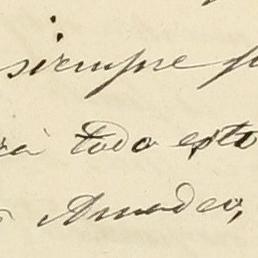 siempre
todo esto
Amadeo,